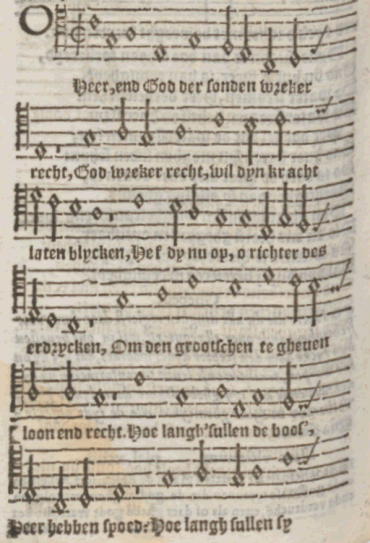 O
Heer, end God der sonden wreker
recht, God wreker recht, wil dyn kracht
laten blycken, Hef dy nu op, o richter des
erdrycken, Om den grootschen te gheven
loon end recht. Hoe langh' sullen de boos',
Heer hebben spoed: Hoe langh sullen sy